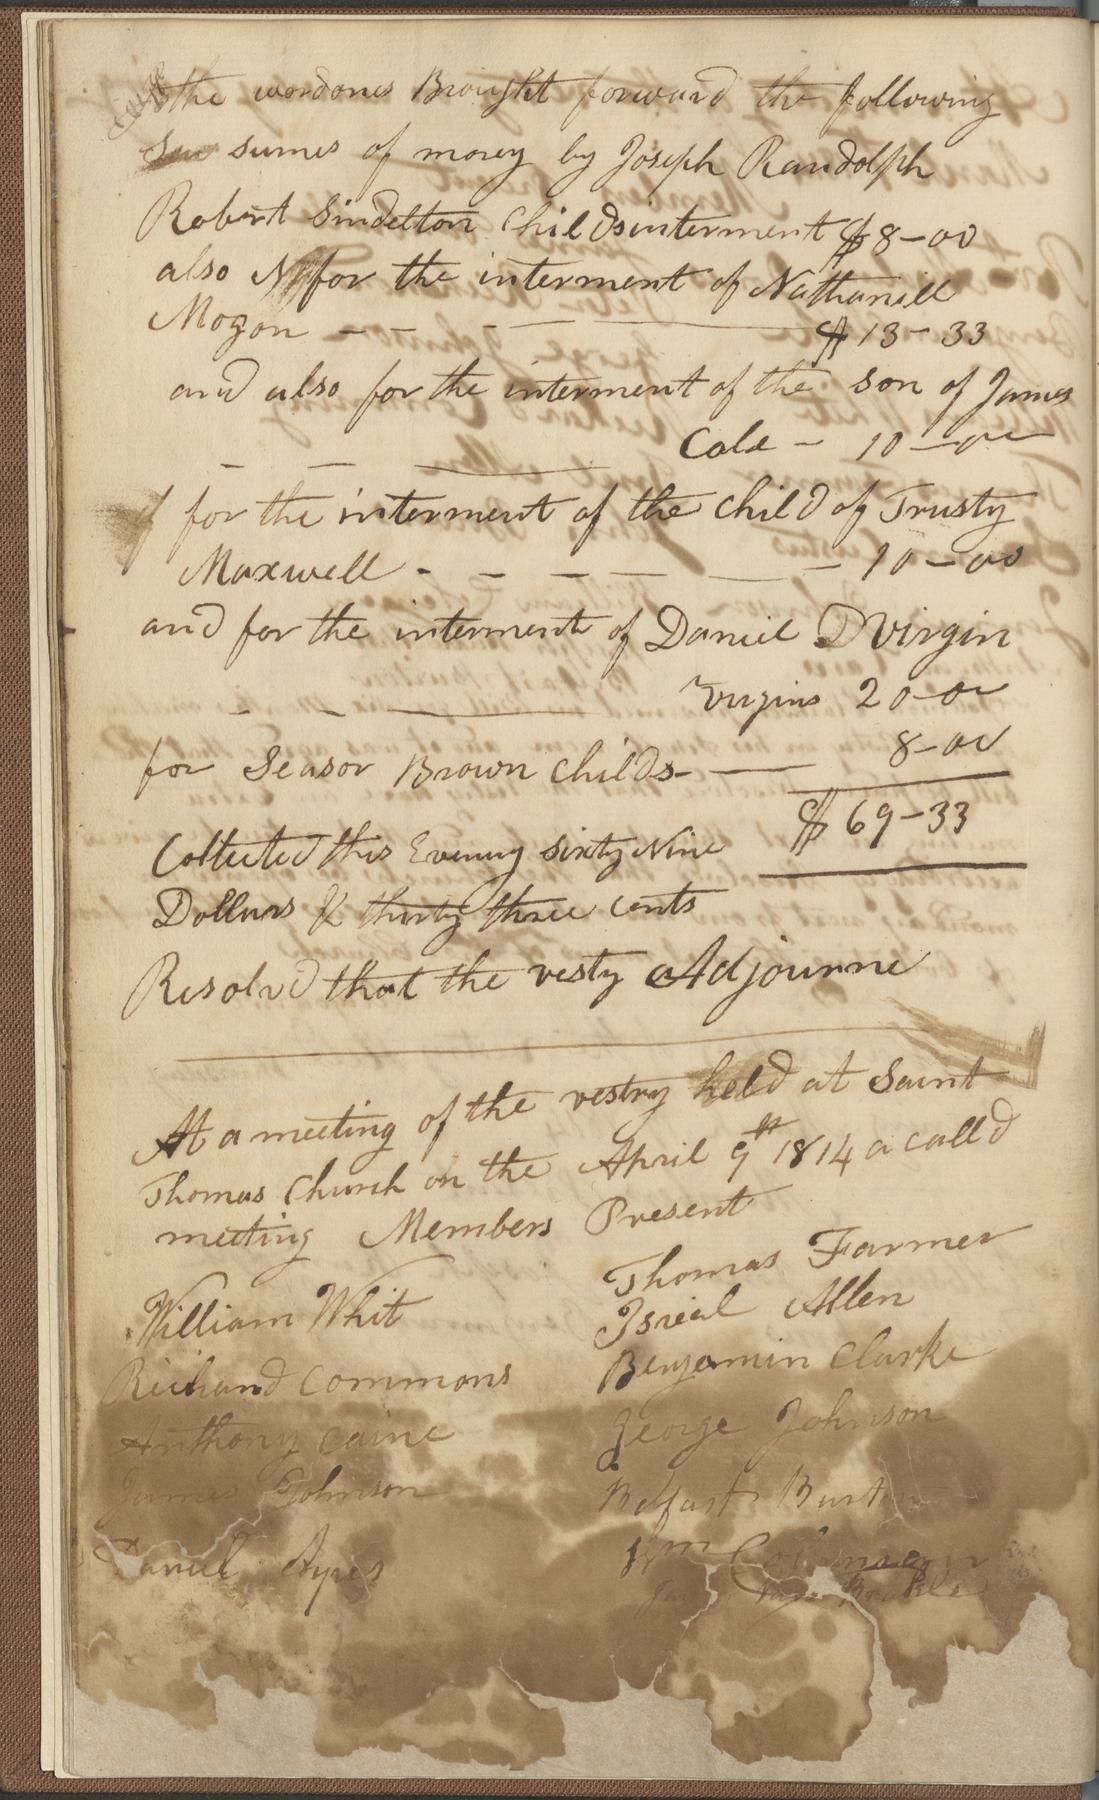 the wordones Brought forward the following
sumes of money by Joseph Randolph
Robert Sindelton Childs interment $ 8-00
also for the interment of Nathaniell
Mogon - - - - $ 13-33
and also for the interment of the son of James
- - - Cole - 10-00
for the interment of the child of Trusty
Maxwell - - - - - - 10-00
and for the interment of Daniel D Virgin
- - - Virgins 20-00
8-00
for Seasor Brown Childs -
$ 69-33
Collected this Evening sixty Nine
Dollars & thirty three cents
Resolvd that the vesty Adjourne
At a meeting of the vestry held at Saint
Thomas Church on the April 9th 1814 a calld
meeting Members Present
Thomas Farmer
William Whit
Isreal Allen
Richard Commons
Benjamin Clarke
Anthony Caine
George Johnson
James Johnson
Belfast Burton
Daniel Ayres
Wm Coleman